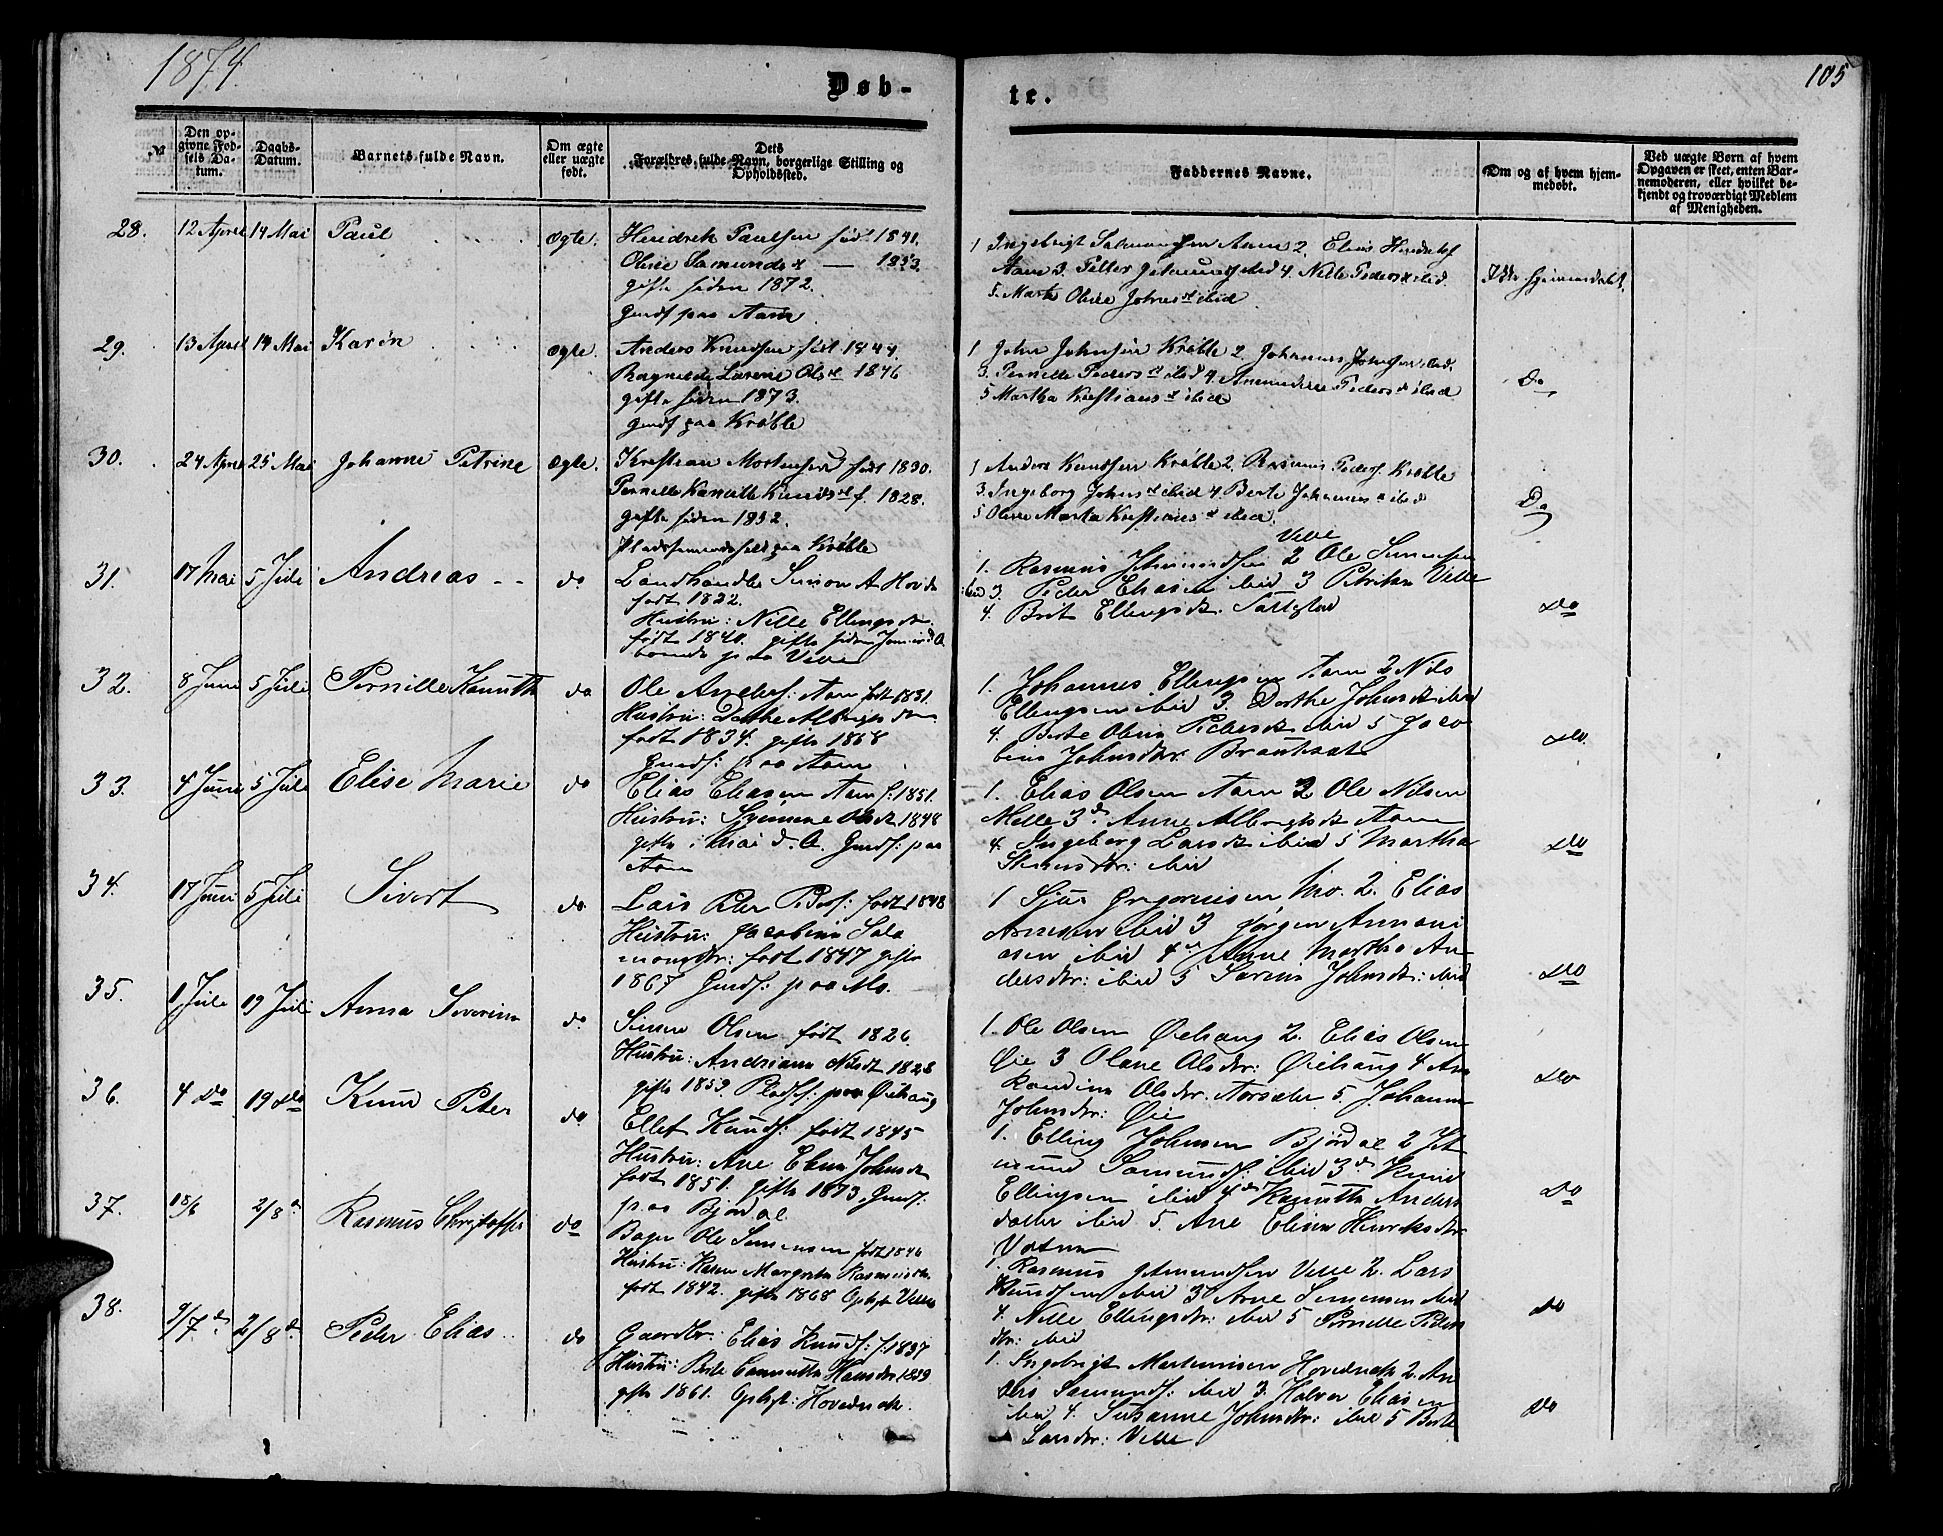 1874.
105
Døb-
te.
№
Den op-
givne Fød-
sels Da-
tum.
Daabs-
Datum.
Barnets fulde Navn.
Om ægte
eller uægte
født.
Dets
Forældres fulde Navn, borgerlige Stilling og
Opholdssted.
Faddernes Navne.
Om og af hvem hjem-
medøbt.
Ved uægte Børn af hvem
Opgaven er skeet, enten Bar-
nemoderen, eller hvilket be-
kjendt og troværdigt Medlem
af Menigheden.
28. 12 April 14 Mai Paul ægte.
Hendrik Paulsen født 1841.
Oline Samundsd — 1853.
gifte siden 1872.
Gmdf paa Aam
1 Ingebrigt Aam 2. Elias
Aam 3. Petter ibid 4. Nille Pedersd ibid.
5. Marte Oline Johnsd ibid
Ikke hjemmedøbt.
29. 13 April 14 Mai Karen ægte.
Anders Knudsen født 1844.
Ragnilde Larine Olsd 1846
gifte siden 1873.
Gmdf paa Krøble
1 John Johnsen Krøble 2. Johannes ibid.
3. Pernille Pedersd ibid 4. Pedersd ibid
5 Martha Kristiansd ibid
Do
30. 24 April 25 Mai Johanne Petrine ægte.
Kristian Mortensen født 1830.
Pernille Kanutte Knudsd f. 1828.
gifte siden 1852.
paa Krøble
1 Anders Knudsen Krøble 2. Rasmus Pedersf Krøble
3. Ingeborg Johnsd ibid 4. Berte Johannesd ibid
5 Oline Marta Kristiansd ibid.
Do
31. 17 Mai 5 Juli Andreas do
Landhandler Simon A Hovde
født 1822.
Hustru: Nille Ellingsdr
født 1840. gifte siden d. A.
boende paa Velle
1. Rasmus Velle 2 Ole Simensen
ibid 3. Peder Eliasen ibid 3 Velle
4. Brit Ellingsdr.
do
32. 8 Juni 5 Juli Pernille Kanutte do
Ole Andersf: Aam født 1831.
Hustru: Dorthe Albrigtsdr
født 1834. gifte 1868
Gmdf: paa Aam
1. Johannes Ellingsen Aam 2 Nils
Ellingsen ibid 3. Dorthe Johnsdr ibid
4. Berte Olina Pedersdr ibid 5 Jaco-
bine Johnsdtr:
do
33. 4 Juni 5 Juli Elise Marie do
Elias Eliasen Aam f. 1851.
Hustru: Olsdr 1848
gifte i Mai d. A. Gmdf: paa
Aam
1. Elias Olsen Aam 2 Ole Nilsen
Melle 3d Anne Albrigtsdr Aam
4. Ingeborg Larsdr ibid 5 Martha
ibid
do
34. 17 Juni 5 Juli Sivert do
Lars Peter født 1848
Hustru: Jacobine Salo
monsdtr: født 1847 gifte
1867 Gmdf: paa Mo.
1 Sjur Gregoriusen Mo. 2. Elias
Arnesen ibid 3 Jørgen Annani
asen ibid 4 Anne Martha An-
dersdtr: ibid 5 Johnsdr: ibid
do
35. 1 Juli 19 Juli Anna Severine do
Simen Olsen født 1826.
Hustru: Andriane Nilsdt 1828
gifte 1859. Pladsf: paa Øiehaug
1. Ole Olsen Øiehaug 2. Elias Olsen
Øie 3 Olane Olsdtr: Øiehaug 4 An
Olsdtr: 5. Johanne
Johnsdtr: Øie
do
36. 4 do 19 do Knud Peter do
Ellef Knudf: født 1845
Hustru: Ane Johnsdr
født 1851. gifte 1873. Gmdf.
paa Bjørdal
1. Elling Johnsen Bjørdal 2 Jet
mund Samundf: ibid 3d Knud
Ellingsen ibid 4d Kanutte Anders
datter ibid 5. Ane Elisia Hinriksdtr
Vatne
do
37. 18/6 2/8 Rasmus Christoffer do
Bager Ole Simensen født 1846
Hustru: Karen Margrete Rasmusdtr.
født 1842. gifte 1868 Ophst Velle
1. Rasmus Velle 2. Lars
Knudsen ibid 3 Arne Simensen ibid
4. Nille Ellingsdtr: ibid 5 Pernille Peders
dtr: ibid
do
38. 9/7 2/8 Peder Elias do
Gaardbr: Elias Knudf: f. 1837
Hustru: Berte Cannutte Hansdtr 1839
gifte 1861. Ophst: Hovdenak.
1. Ingebrigt Martinusen Hovdenak 2. An
ders Samundf: ibid 3. Halvor Eliasen
ibid 4. Susanne Johnsdtr: ibid 5 Berte
Larsdtr: Velle
do